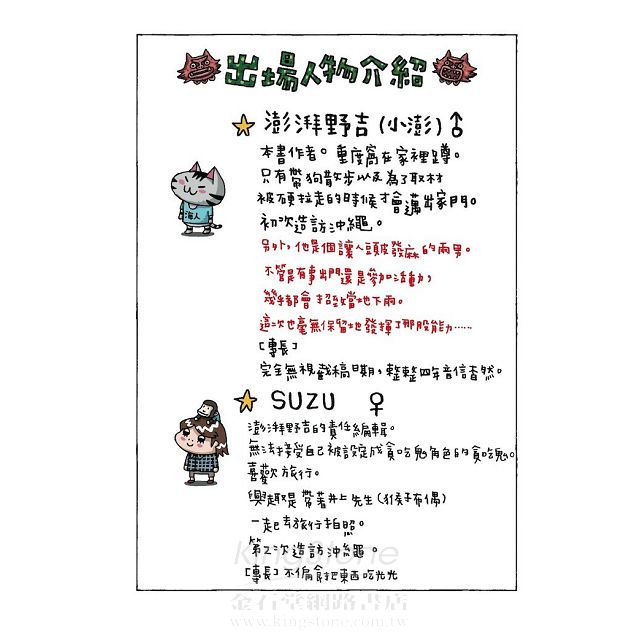 出場人物介紹
澎湃野吉(小澎)♂
本書作者。重度窩在家裡蹲。
只有帶狗散步以及為了取材
被硬拉走的時候才會邁出家門。
初次造訪沖繩。
海人
另外,他是個讓人頭皮發麻的雨男。
不管是有事出門還是參加活動,
幾乎都會招致當地下雨。
這次也毫無保留地發揮了那股能力……
[專長]
完全無視截稿日期,整整四年音信杳然。
SUZU ♀
澎湃野吉的責任編輯。
無法接受自己被設定成貪吃鬼角色的貪吃鬼。
喜歡旅行。
興趣是帶著井上先生(猴子布偶)
一起去旅行拍照。
第2次造訪沖繩。
[專長]不偏食把東西吃光光
KingStone
金石堂網路書店
www.kingstone.com.tw